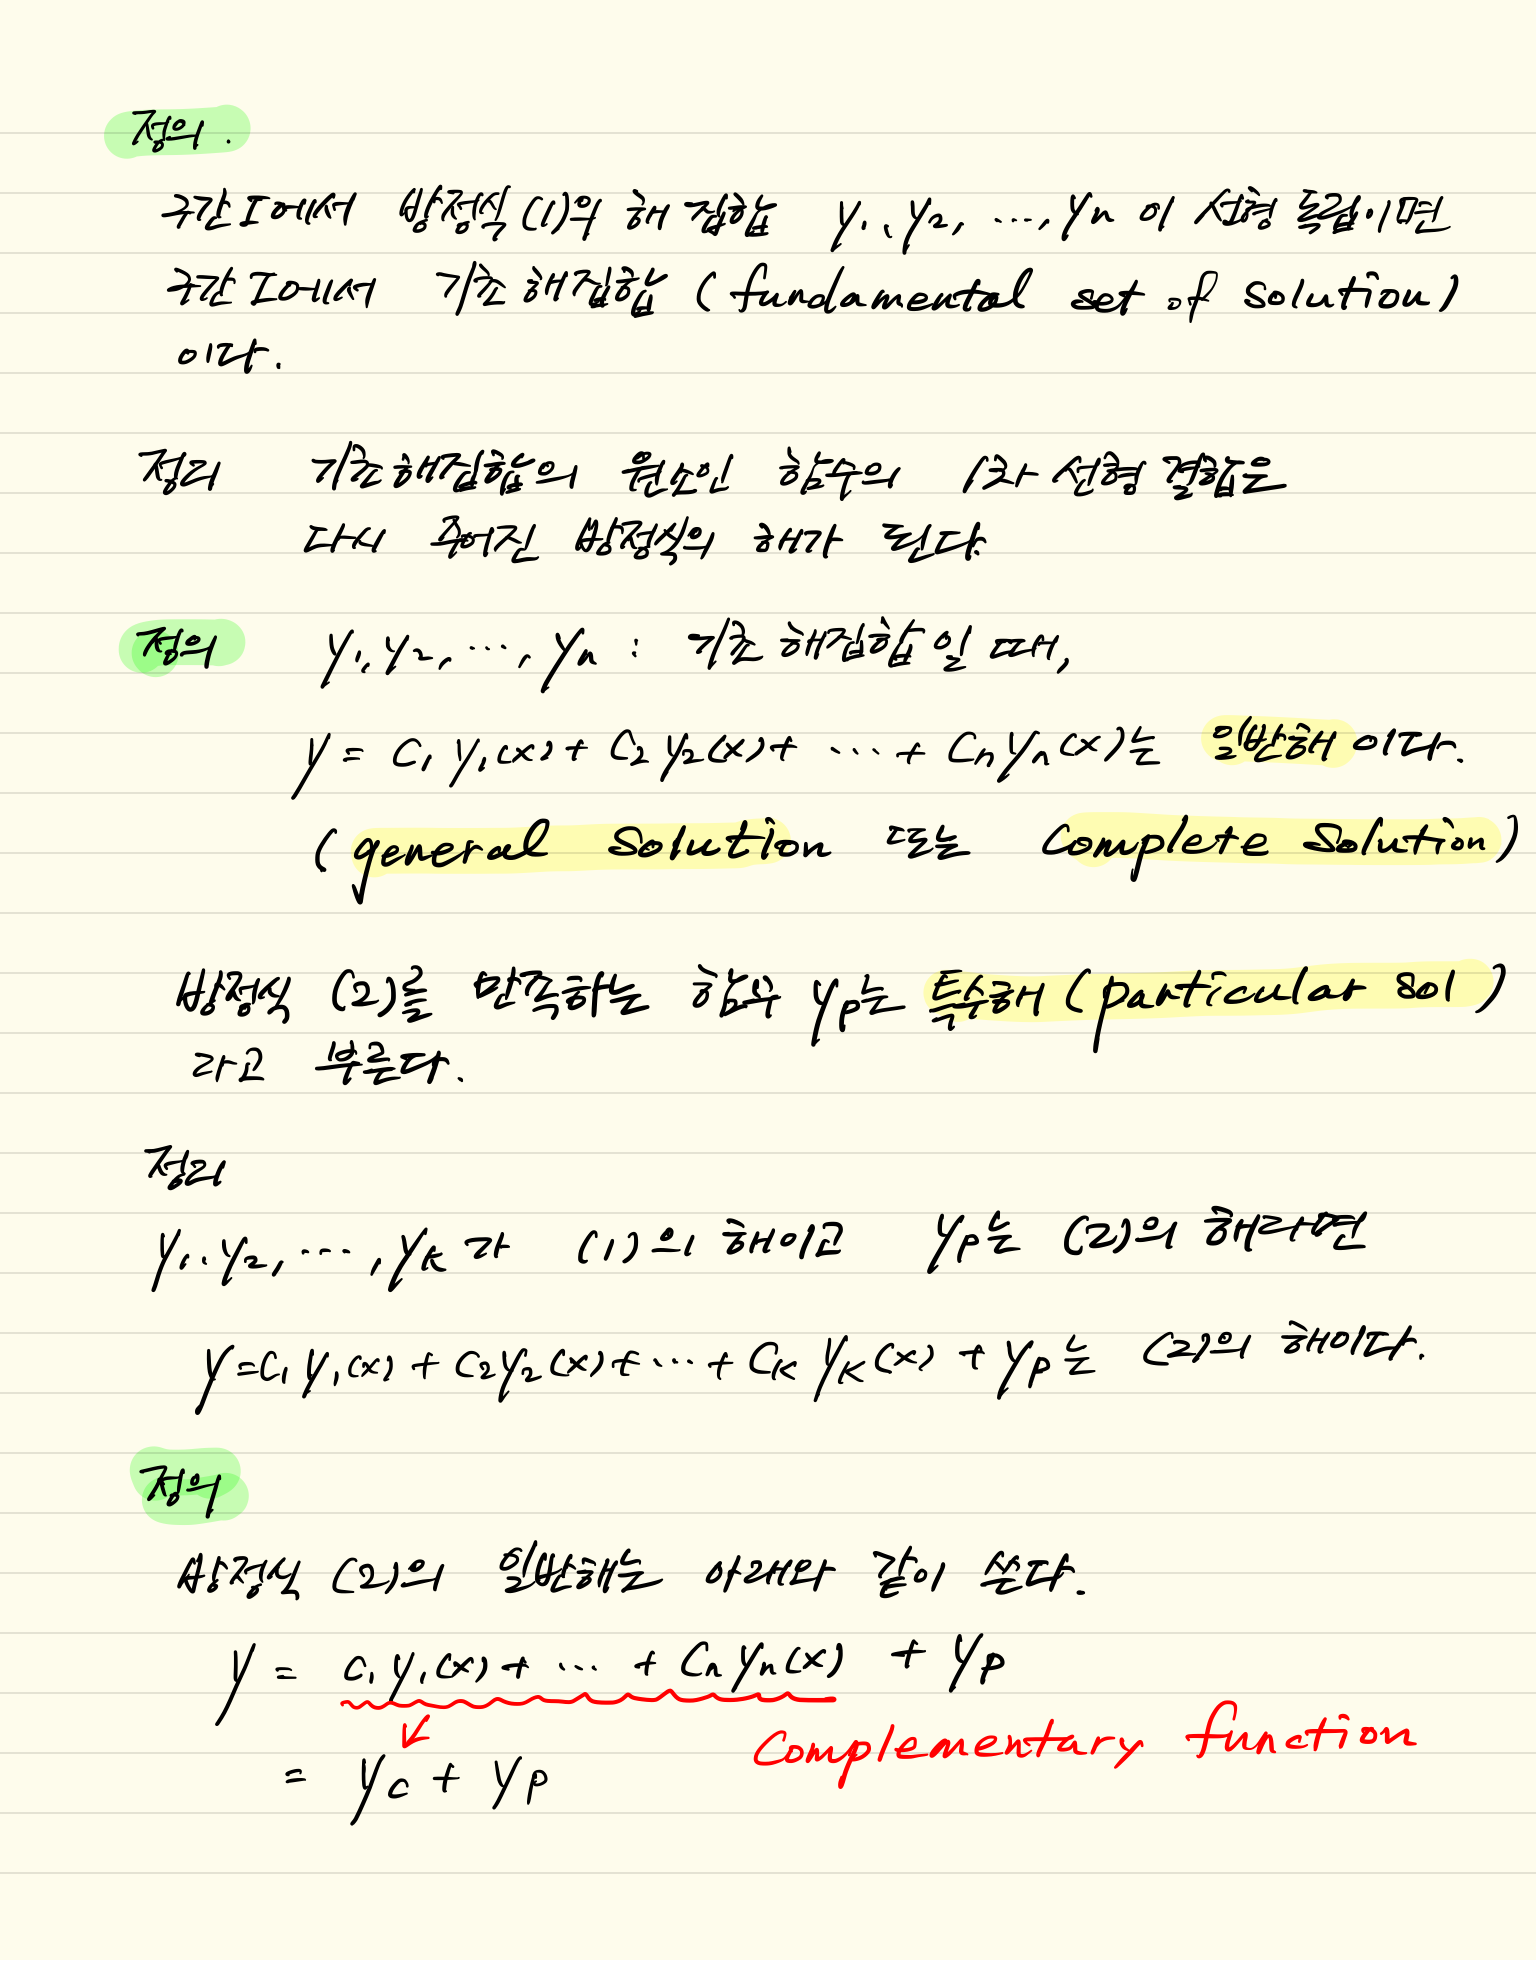 정의.
구간 I에서 방정식 (1)의 해집합 y₁, y₂, ⋯, yₙ 이 선형 독립이면
구간 I에서 기초해집합 (fundamental set of solution)
이다.
정리 기초해집합의 원소인 함수의 1차 선형 결합은
다시 주어진 방정식의 해가 된다.
정의 y₁, y₂, ⋯, yₙ : 기초해집합일 때,
y = C₁ y₁(x) + C₂ y₂(x) + ⋯ + Cₙ yₙ(x)는 일반해이다.
(general solution 또는 Complete Solution)
방정식 (2)를 만족하는 함수 yₚ는 특수해 (particular sol)
라고 부른다.
정리
y₁, y₂, ⋯, yₖ 가 (1)의 해이고 yₚ는 (2)의 해라면
y = C₁ y₁(x) + C₂ y₂(x) + ⋯ + Cₖ yₖ(x) + yₚ는 (2)의 해이다.
정의
방정식 (2)의 일반해는 아래와 같이 쓴다.
y = C₁ y₁(x) + ⋯ + Cₙ yₙ(x) + yₚ
Complementary function
= y_c + yₚ